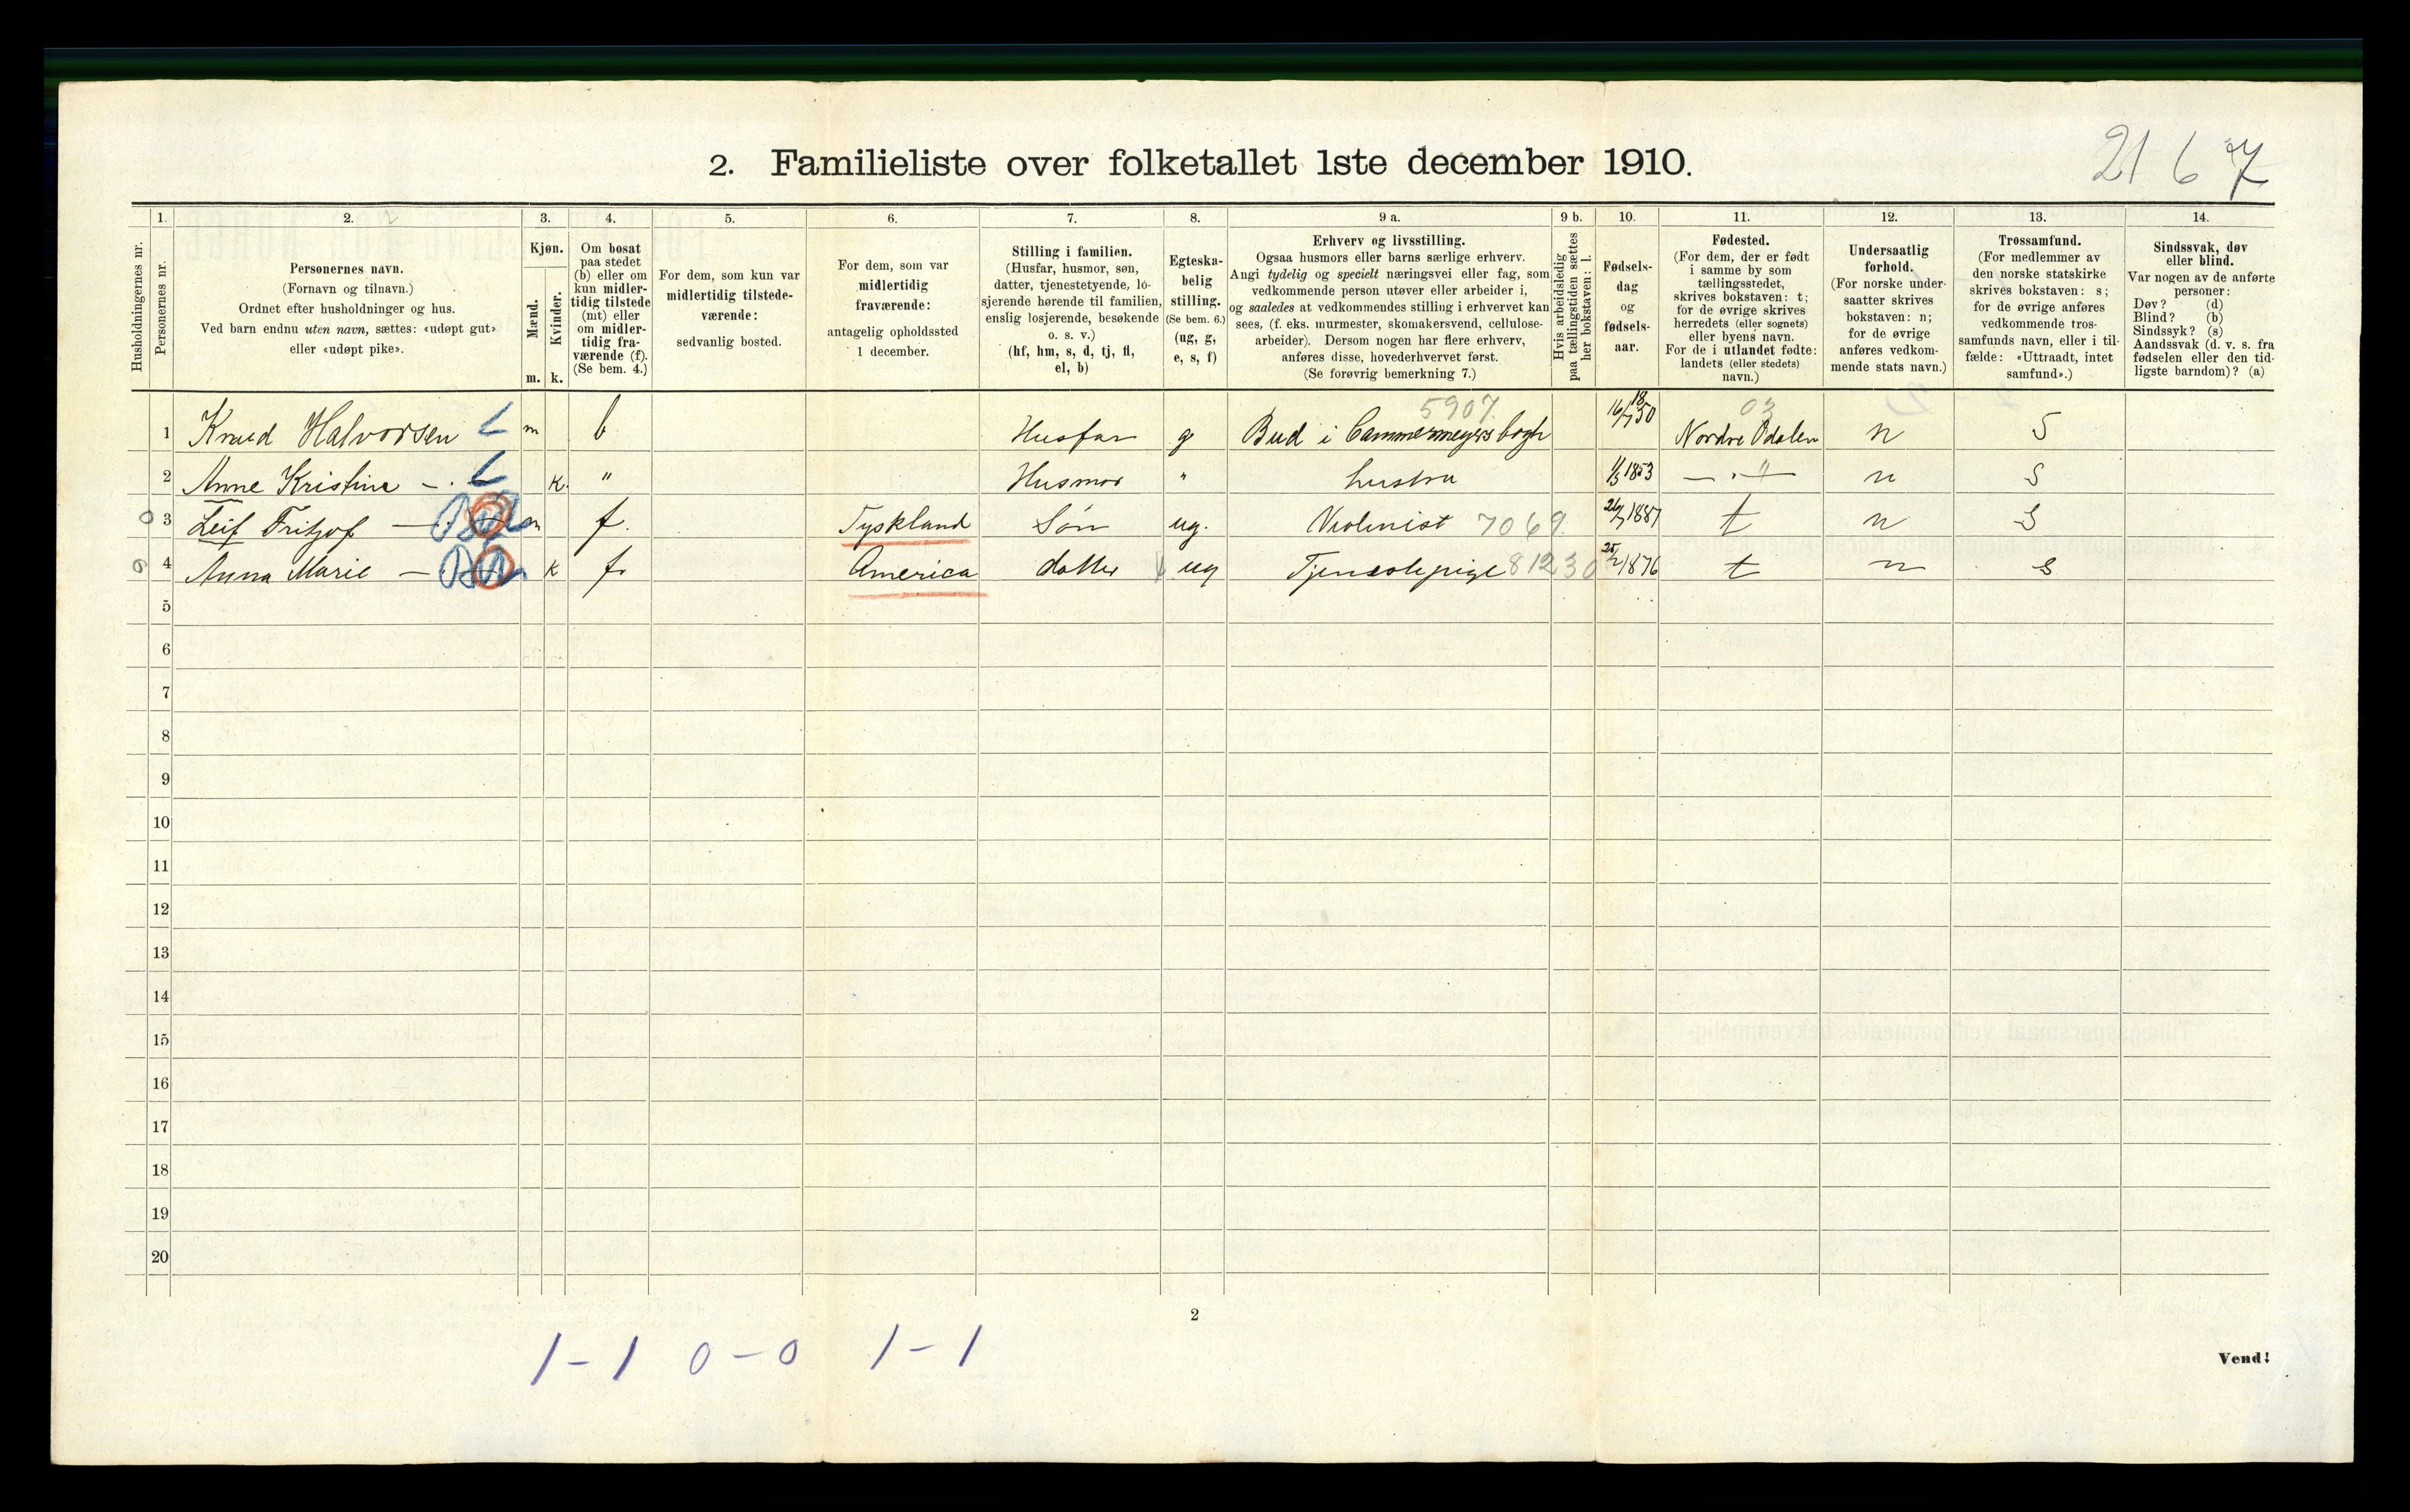 21 6 7
2. Familieliste over folketallet 1ste december 1910.
Husholdningernes nr.
1. Personernes nr.
2. Personernes navn.
(Fornavn og tilnavn.)
Ordnet efter husholdninger og hus.
Ved barn endnu uten navn, sættes: «udøpt gut»
eller «udøpt pike».
3. Kjøn.
Mænd. Kvinder.
m. k.
4. Om bosat
paa stedet
(b) eller om
kun midler-
tidig tilstede
(mt) eller
om midler-
tidig fra-
værende (f).
(Se bem. 4.)
5. For dem, som kun var
midlertidig tilstede-
værende:
sedvanlig bosted.
6. For dem, som var
midlertidig
fraværende:
antagelig opholdssted
1 december.
7. Stilling i familien.
(Husfar, husmor, søn,
datter, tjenestetyende, lo-
sjerende hørende til familien,
enslig losjerende, besøkende
o. s. v.)
(hf, hm, s, d, tj, fl,
el, b)
8. Egteska-
belig
stilling.
(Se bem. 6.)
(ug, g,
e, s, f)
9 a. Erhverv og livsstilling.
Ogsaa husmors eller barns særlige erhverv.
Angi tydelig og specielt næringsvei eller fag, som
vedkommende person utøver eller arbeider i,
og saaledes at vedkommendes stilling i erhvervet kan
sees, (f. eks. murmester, skomakersvend, cellulose-
arbeider). Dersom nogen har flere erhverv,
anføres disse, hovederhvervet først.
(Se forøvrig bemerkning 7.)
9 b. Hvis arbeidsledig
paa tællingstiden sættes
her bokstaven: l.
10. Fødsels-
dag
og
fødsels-
aar.
11. Fødested.
(For dem, der er født
i samme by som
tællingsstedet,
skrives bokstaven: t;
for de øvrige skrives
herredets (eller sognets)
eller byens navn.
For de i utlandet fødte:
landets (eller stedets)
navn.)
12. Undersaatlig
forhold.
(For norske under-
saatter skrives
bokstaven: n;
for de øvrige
anføres vedkom-
mende stats navn.)
13. Trossamfund.
(For medlemmer av
den norske statskirke
skrives bokstaven: s;
for de øvrige anføres
vedkommende tros-
samfunds navn, eller i til-
fælde: «Uttraadt, intet
samfund».)
14. Sindssvak, døv
eller blind.
Var nogen av de anførte
personer:
Døv? (d)
Blind? (b)
Sindssyk? (s)
Aandssvak (d. v. s. fra
fødselen eller den tid-
ligste barndom)? (a)
5907. 03
1 Knud Halvorsen L m b Husfar g Bud i Cammermeyers bogh 16/7 1850 Nordre Odalen n S
2 Anne Kristine — . L k. " Husmor " hustru 1/5 1853 — . " — n S
0 3 Leif Fritjof — m f. Tyskland Søn ug. Violinist 7069. 26/7 1887 t n S
0 4 Anna Marie — k f. America datter ug Tjenestepige 81230 25/2 1876 t n S
5
6
7
8
9
10
11
12
13
14
15
16
17
18
19
20
2
1 - 1 0 - 0 1 - 1
Vend!